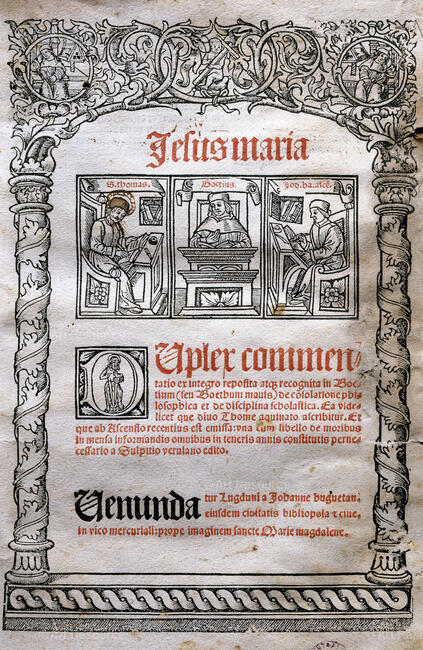 Jesus maria
S. thomas. Boetius. Jod. ba. asce.
DUplex commen/
tatio ex integro reposita atq3 recognita in Boe/
tium (seu Boethum mauis) de cōsolatione phi/
losophica et de disciplina scholastica. Ea vide/
licet que diuo Thome aquinato ascribitur. Et
que ab Ascensio recentius est emissa: vna cum libello de moribus
in mensa informandis omnibus in teneris annis constitutis perne/
cessario a Sulpitio verulano edito.
Uenunda tur Lugduni a Johanne huguetan:
eiusdem ciuitatis bibliopola et ciue,
in vico mercuriali: prope imaginem sancte Marie magdalene.